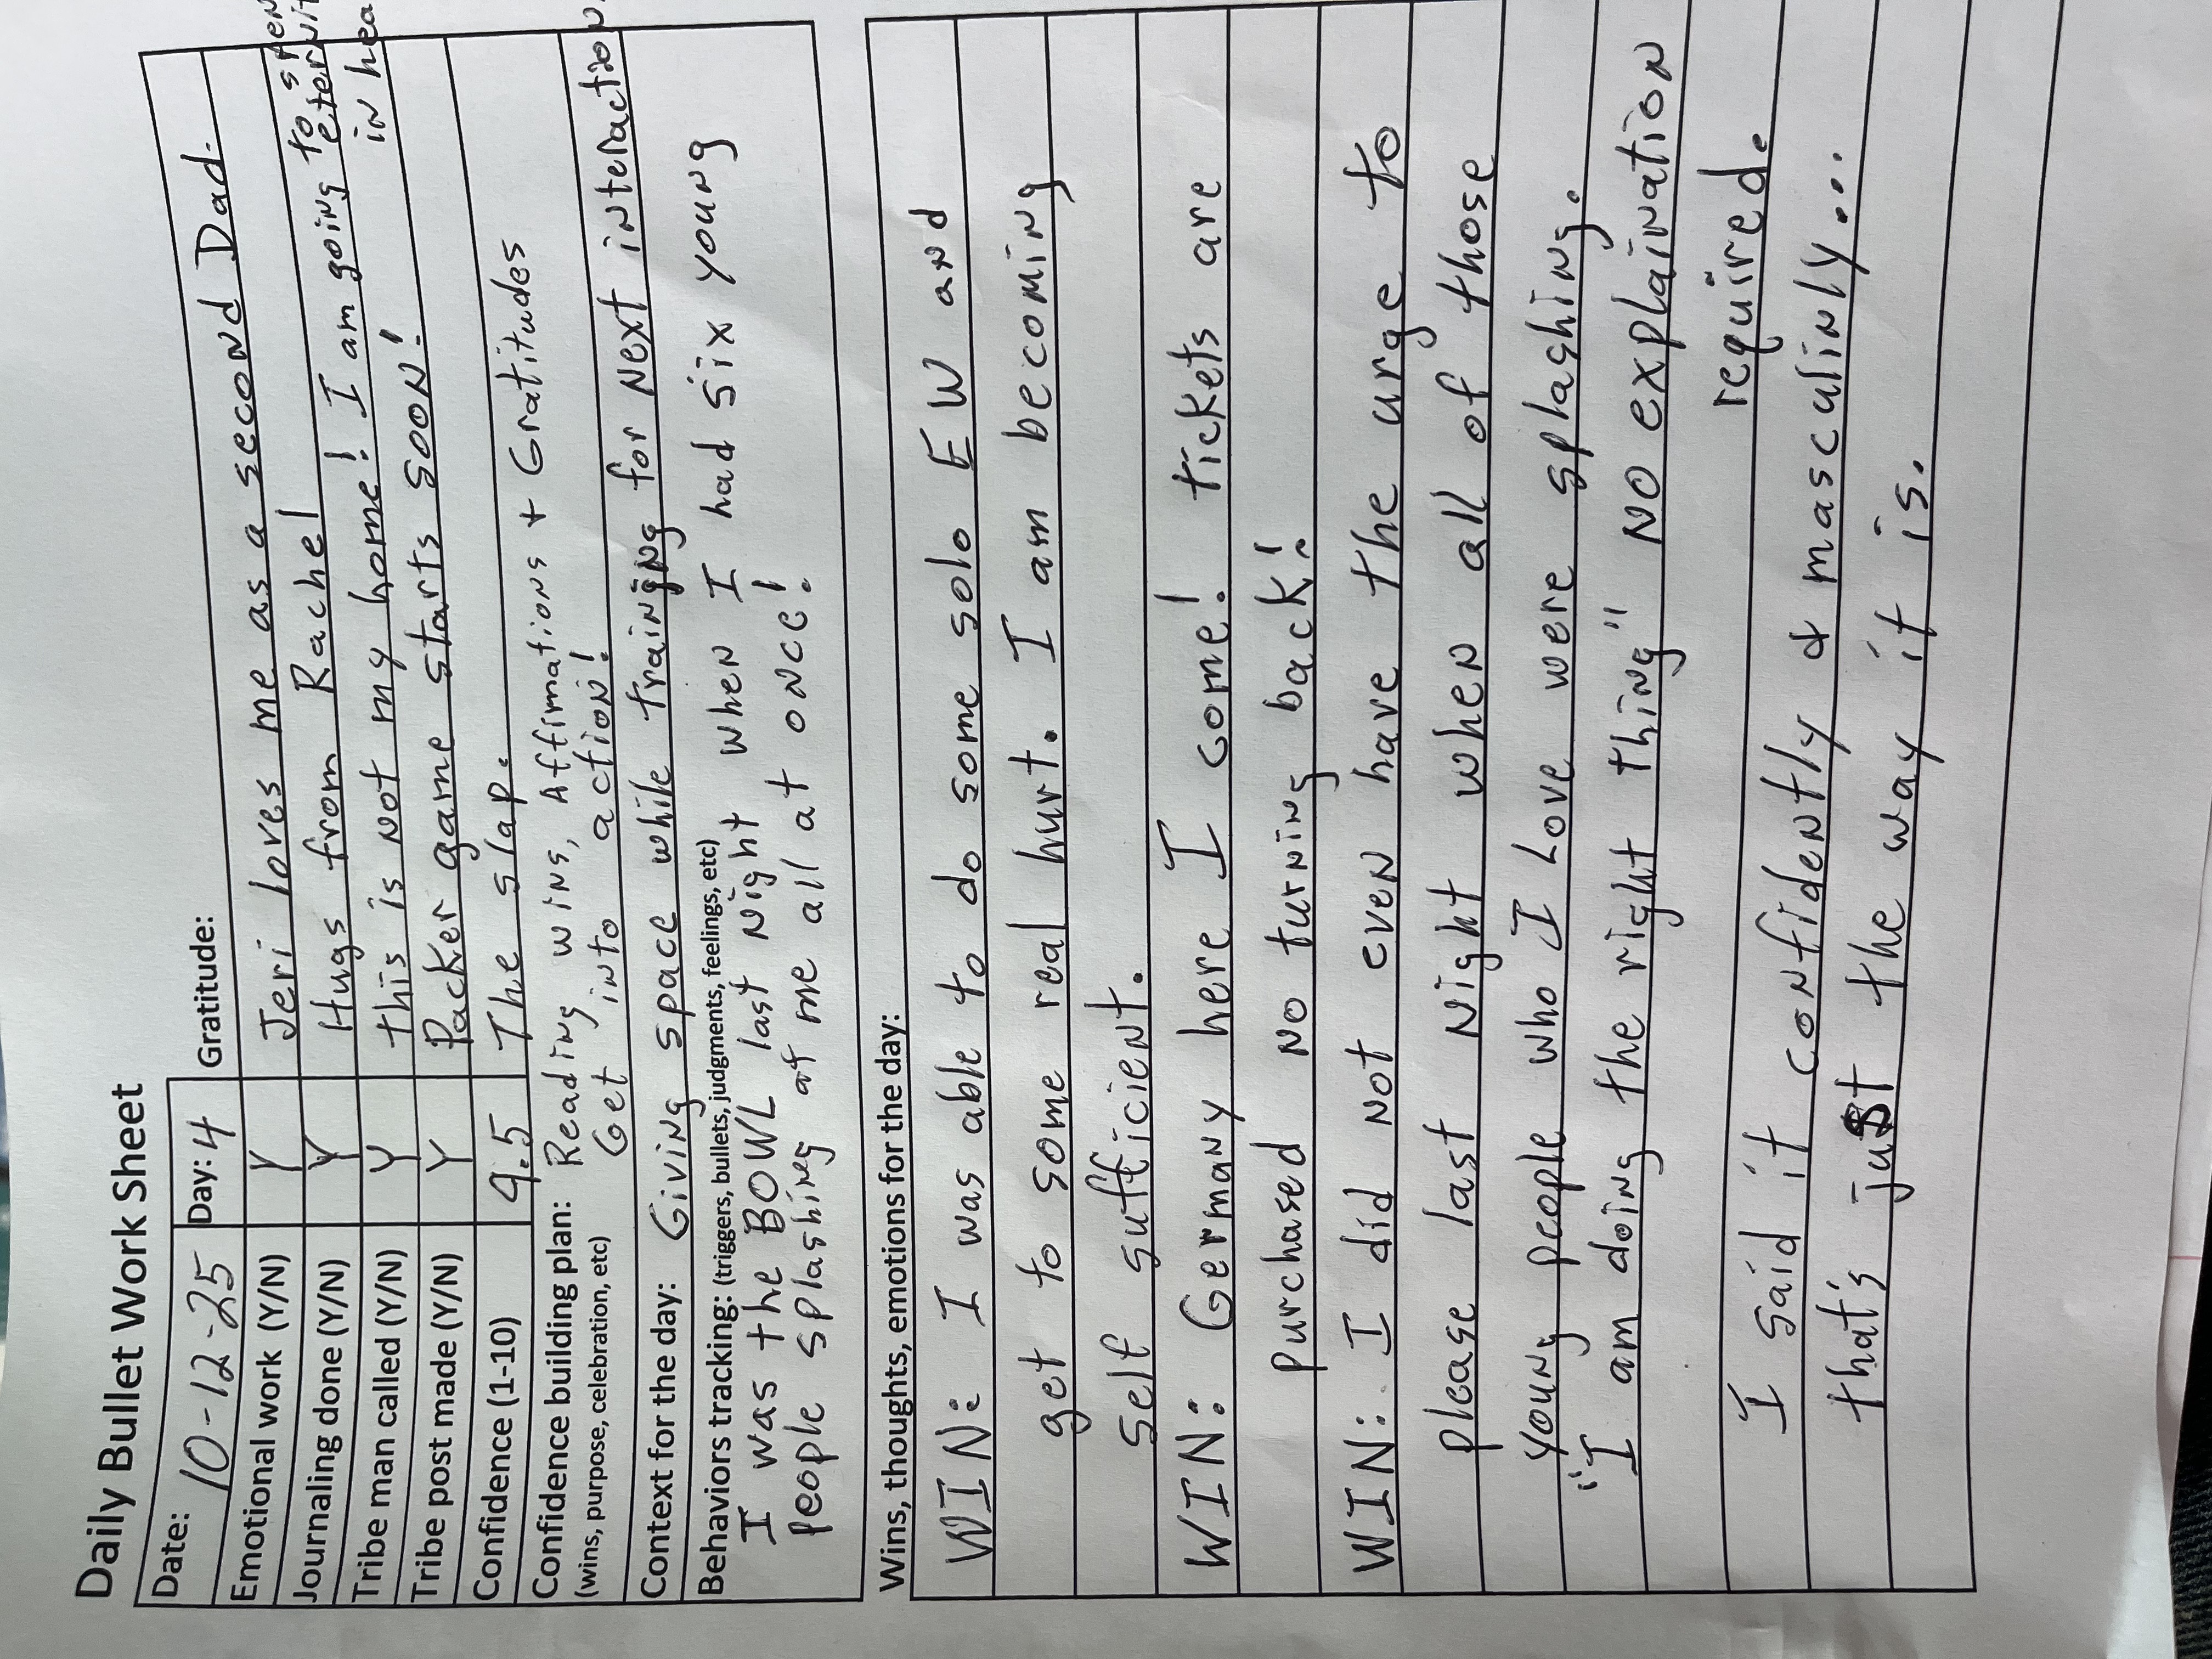 Daily Bullet Work Sheet
Date: 10-12-25 Day: 4 Gratitude:
Emotional work (Y/N) Y Jeri loves me as a second Dad.
Journaling done (Y/N) Y Hugs from Rachel
Tribe man called (Y/N) Y this is not my home! I am going to
in hea
Tribe post made (Y/N) Y Packer game starts soon!
Confidence (1-10) 9.5 The slap.
Confidence building plan: Reading wins, Affimations + Gratitudes
(wins, purpose, celebration, etc) Get into action!
Context for the day: Giving space while training for next interaction
Behaviors tracking: (triggers, bullets, judgments, feelings, etc)
I was the BOWL last night when I had six young
people splashing at me all at once!
Wins, thoughts, emotions for the day:
WIN: I was able to do some solo EW and
get to some real hurt. I am becoming
self sufficient.
WIN: Germany here I come! tickets are
purchased no turning back!
WIN: I did not even have the urge to
please last night when all of those
young people who I Love were splashing.
"I am doing the right thing" NO explaination
required.
I said it confidently & masculinly...
that's just the way it is.